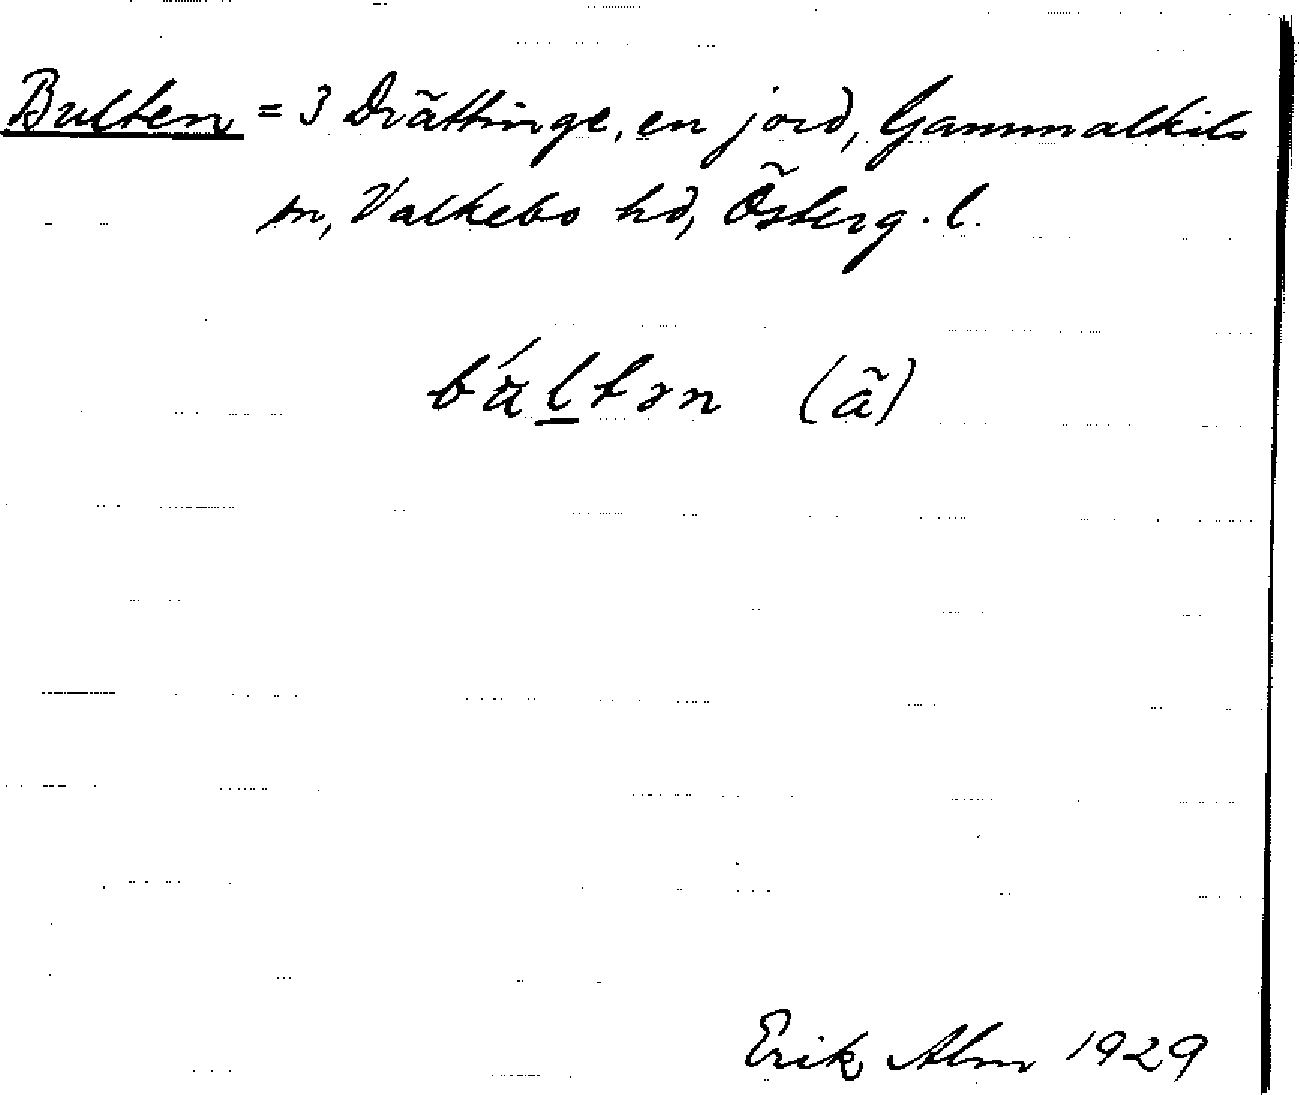 Bulten = 3 Drättinge, en jord, Gammalkils
sn, Valkebo hd, Österg. l.
bál̲tən (ã)
Erik Alm 1929